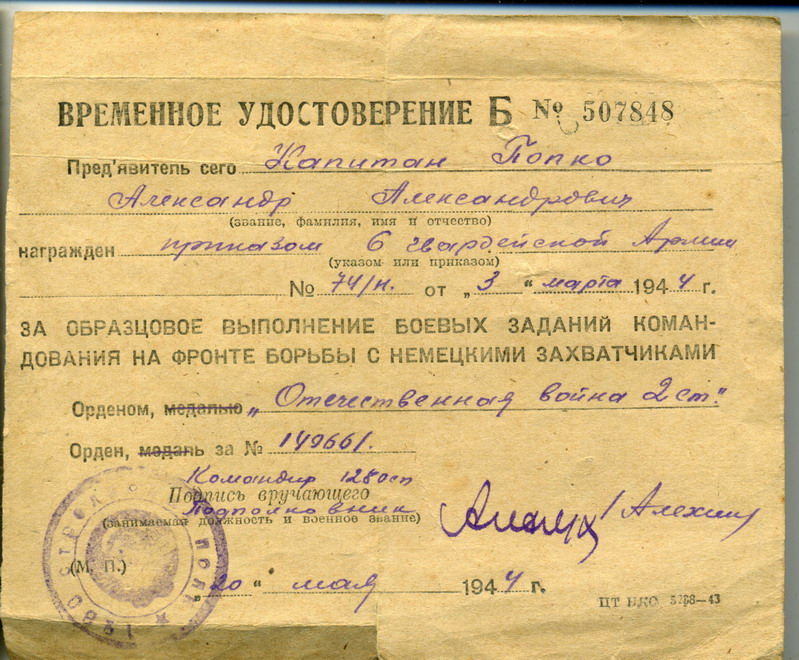 ВРЕМЕННОЕ УДОСТОВЕРЕНИЕ Б № 507848
Пред'явитель сего Капитан Попко
Александр Александрович
(звание, фамилия, имя и отчество)
награжден приказом 6 гвардейской Армии
(указом или приказом)
№ 74/н. от „3“ марта 1944 г.
ЗА ОБРАЗЦОВОЕ ВЫПОЛНЕНИЕ БОЕВЫХ ЗАДАНИЙ КОМАН-
ДОВАНИЯ НА ФРОНТЕ БОРЬБЫ С НЕМЕЦКИМИ ЗАХВАТЧИКАМИ
Орденом, медалью „Отечественная война 2 ст."
Орден, медаль за № 149661.
Командир 128осп
Подпись вручающего
Подполковник
(занимаемая должность и военное звание)
/Алехин/
(М. П.)
„20“ мая 1944 г.
ЦТ НКО 5288—43